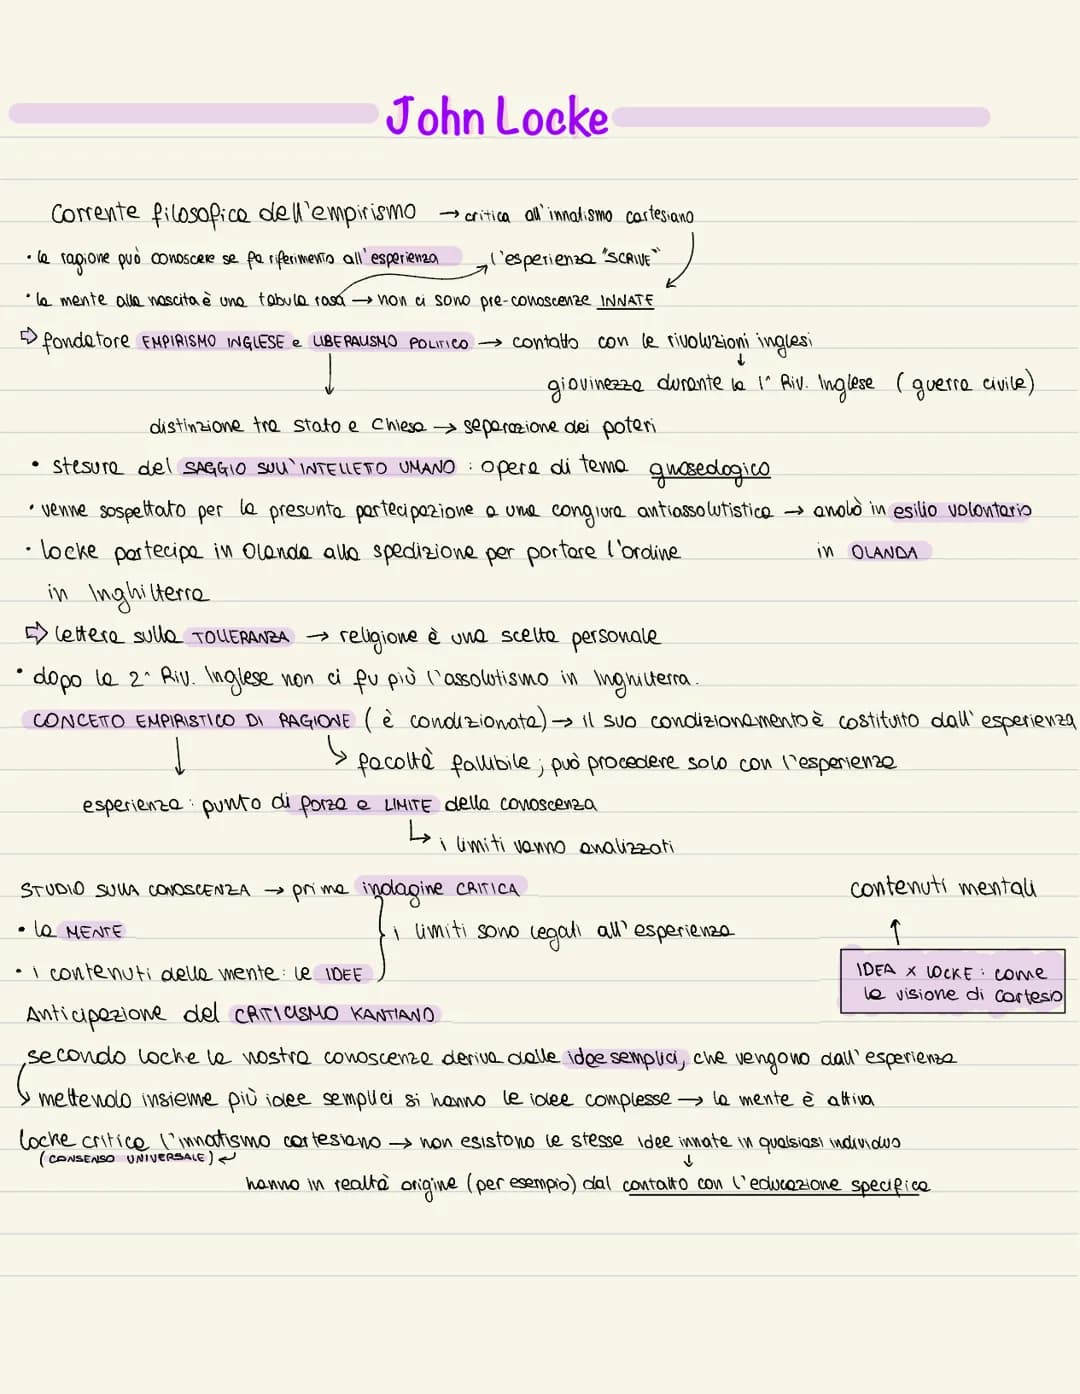 John Locke
Corrente filosofica dell'empirismo → critica all'innatismo cartesiano
• la ragione può conoscere se fa riferimento all'esperienza
l'esperienza "SCRIVE"
• la mente alla nascita è una tabula rasa → non ci sono pre-conoscenze INNATE
⇨ fondatore EMPIRISMO INGLESE e LIBERALISMO POLITICO → contatto con le rivoluzioni inglesi
↓
giovinezza durante la 1^ Riv. Inglese (guerra civile)
distinzione tra stato e Chiesa → separazione dei poteri
• stesura del SAGGIO SULL'INTELLETO UMANO : opera di tema gnosedogico
• venne sospettato per la presunta partecipazione a una congiura antiassolutistica → andò in esilio volontario
in OLANDA
• Locke partecipa in Olanda alla spedizione per portare l'ordine
in Inghilterra
⇨ lettera sulla TOLLERANZA → religione è una scelta personale
• dopo la 2^ Riv. Inglese non ci fu più l'assolutismo in Inghilterra.
CONCETO EMPIRISTICO DI RAGIONE (è condizionata) → il suo condizionamento è costituito dall'esperienza
↳ facoltà fallibile; può procedere solo con l'esperienza
esperienza: punto di forza e LIMITE della conoscenza
↳ i limiti vanno analizzati
STUDIO SULLA CONOSCENZA → prima indagine CRITICA
• la MENTE
• i contenuti della mente: le IDEE
} i limiti sono legati all'esperienza
contenuti mentali
↑
IDEA X LOCKE: come
la visione di Cartesio
Anticipazione del CRITICISMO KANTIANO
secondo Locke la nostra conoscenza deriva dalle idee semplici, che vengono dall'esperienza
↳ mettendo insieme più idee semplici si hanno le idee complesse → la mente è attiva
Locke critica l'innatismo cartesiano → non esistono le stesse idee innate in qualsiasi individuo
(CONSENSO UNIVERSALE) ↩
↓
hanno in realtà origine (per esempio) dal contatto con l'educazione specifica